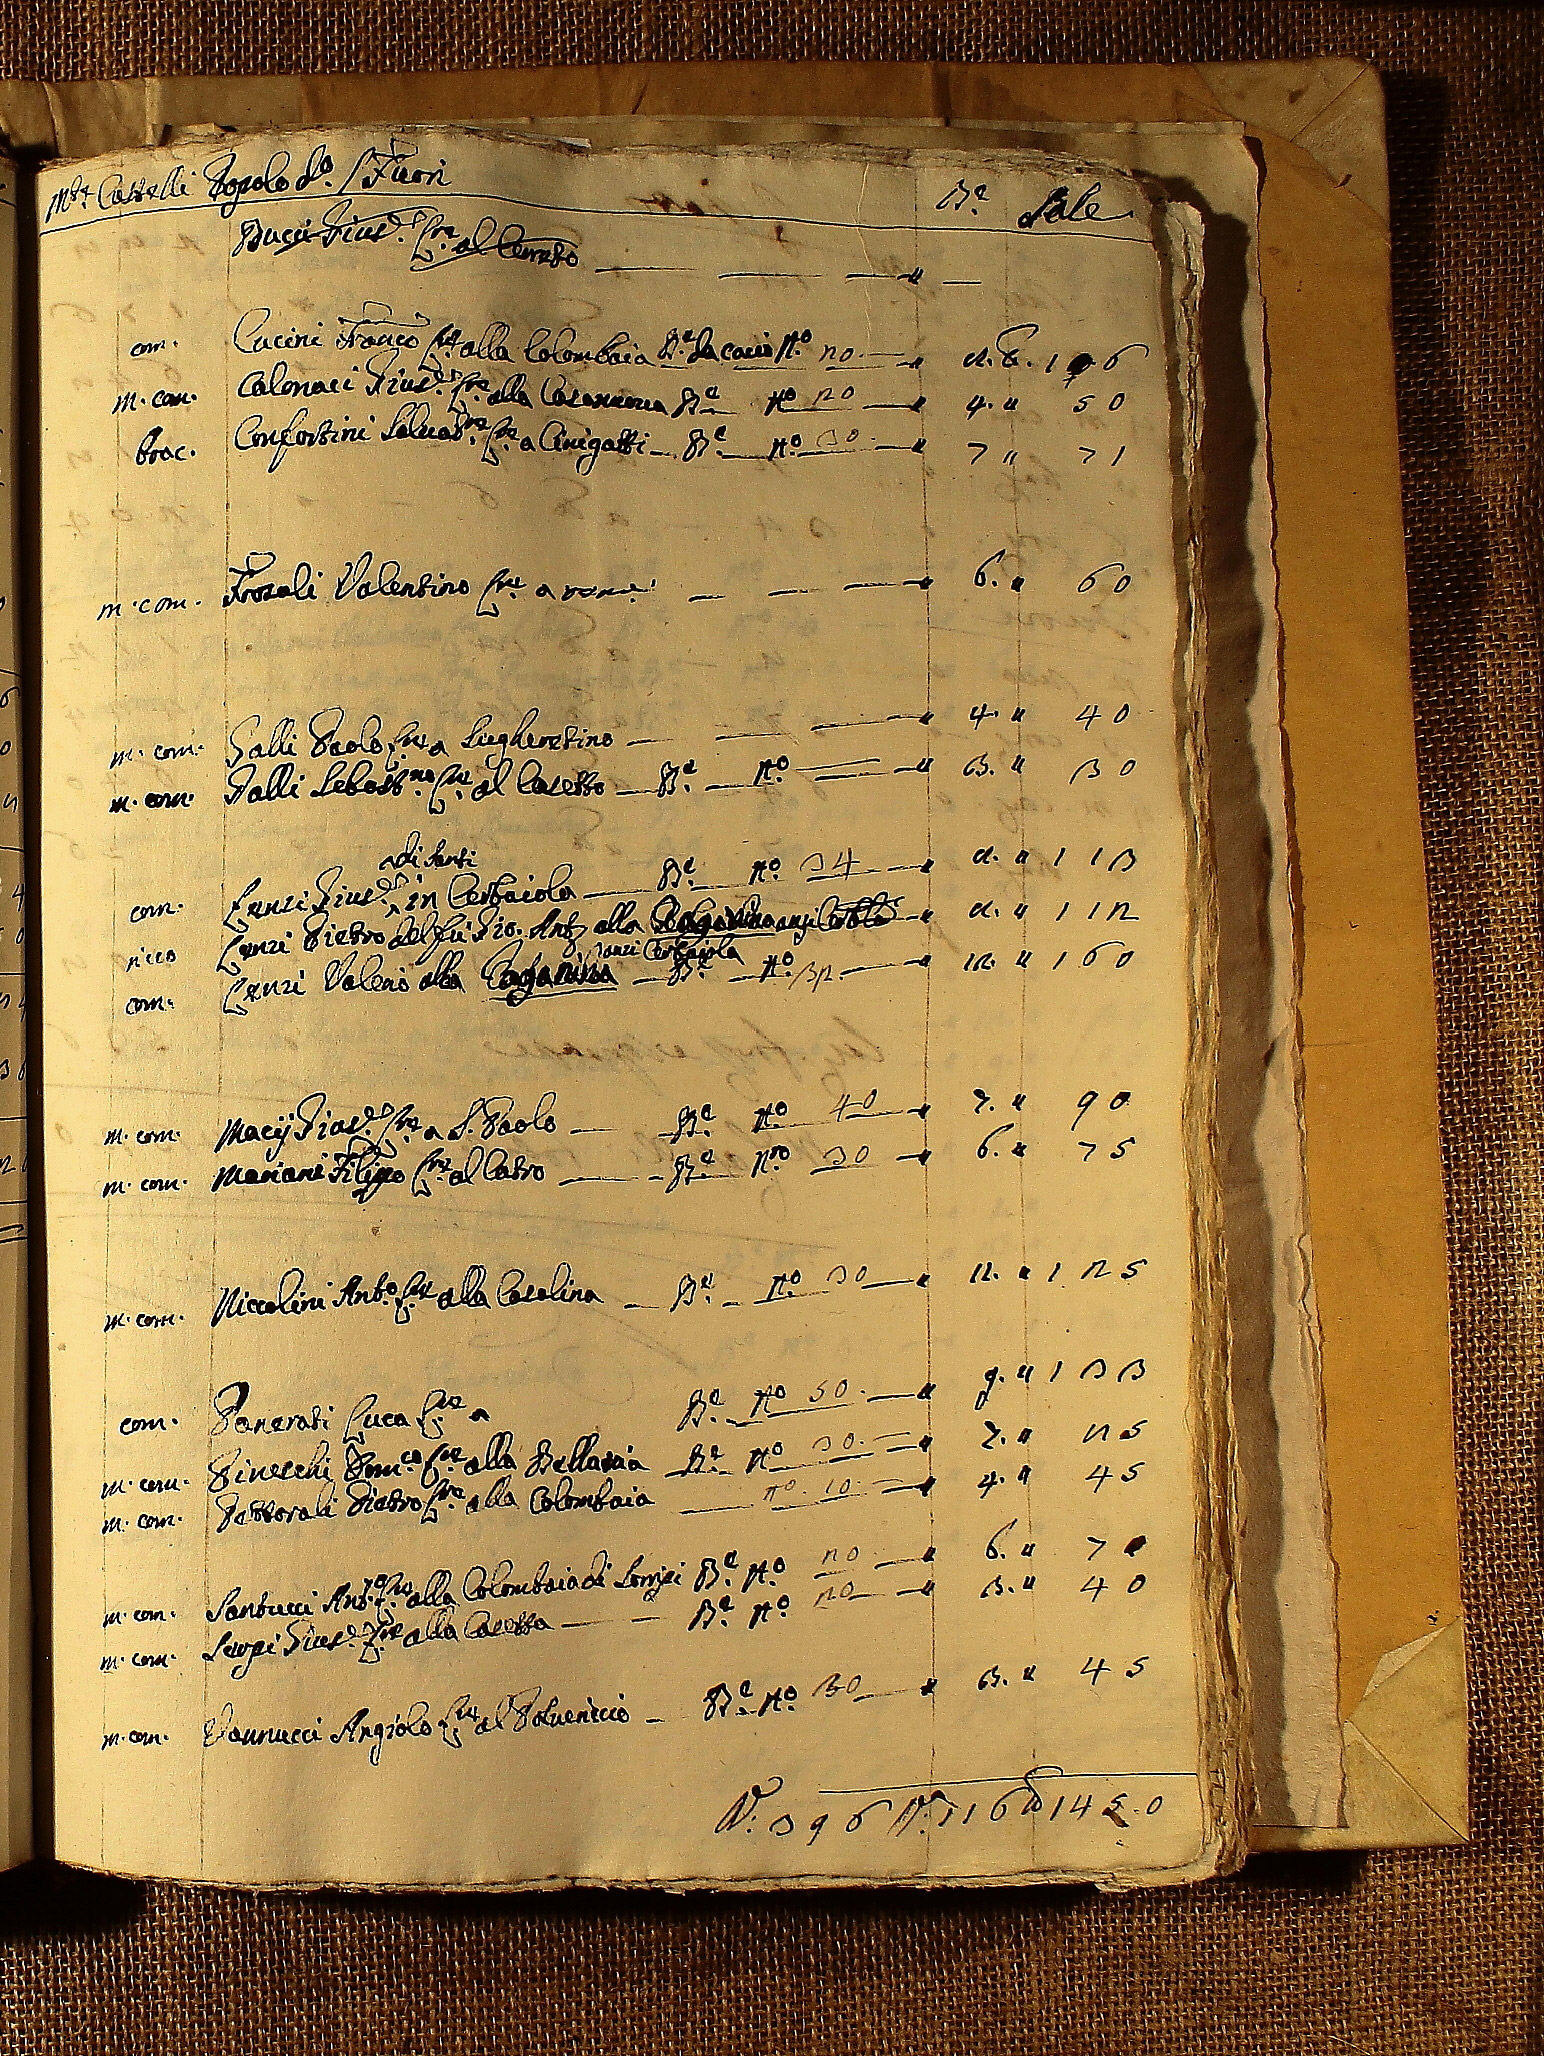 Castelli Popolo do. / Fuori Be. Sale
Bucci Gius. Lre. al Cerreto — — — " —
com. Cucini Franco Lre. alla Colombaia Be. da cacio No. 20 — " 2. 8. 1 6
m. com. Calonaci Gius. Lre. alla Casanuova Be. No 20 — " 4. " 50
brac. Confortini Salvad. Lre. a Cinigatti — Be. No. 30 — " 7 " 71
m. com. Frosali Valentino Lre. a — — — " 6. " 60
m. com. Galli Paolo Lre. a Lugheretino — — — " 4. " 40
m. com. Galli Sebast.no Lre. al Casetto — Be. No — " 3. " 30
di Santi
com. Lenzi Gius. in Cerbaiola — Be. No 34 — " 2. " 113
ricco Lenzi Pietro del fu Gio. Anto. alla " 2. " 112
anzi Cerbaiola
com. Lenzi Valerio alla Paganina — Be. No. 32 — " 12. " 160
m. com. Macij Gius. Lre. a S. Paolo — Be. No. 40 — " 7. " 90
m. com. Mariani Filippo Lre. al Castro — Be. No 30 — " 6. " 75
m. com. Niccolini Anto. Lre. alla Casalina — Be. — No. 30 — " 12. " 125
com. Pancrati Luca Lre. a Be. — No 50. — " 9. " 133
m. com. Pinecchi Dom.co Lre. alla Bellaria — Be. No 30. — " 7. " 25
m. com. Pastorali Pietro Lre. alla Colombaia — No. 10. — " 4. " 45
m. com. Santucci Anto. Lre. alla Colombaia di Be. No. 20 — " 6. " 7
m. com. Serpi Gius. Lre. alla Casetta — — Be. No. 20 — " 3. " 40
m. com. Vannucci Angiolo Lre. al Polvericcio — Be. No. 30 — " 3. " 45
No. 396 No. 116 1450